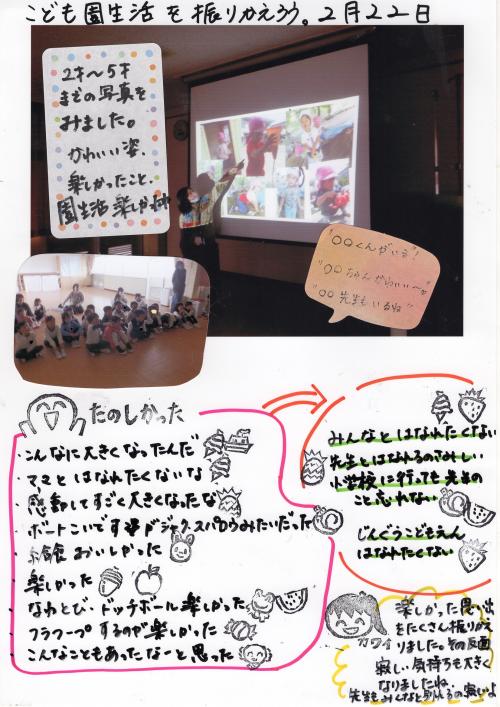 こども園生活を振りかえろう。2月22日
2才〜5才
までの写真を
みました。
かわいい姿、
楽しかったこと、
園生活楽しかったね
"○○くんがいる"!
"○○ちゃんかわいい〜"
"○○先生もいるね"
たのしかった
・こんなに大きくなったんだ
・ママとはなれたくないな
・感動してすごく大きくなったな
・ボートこいです ジャックスパロウみたいだった
・給食おいしかった
・楽しかった
・なわとび・ドッチボール楽しかった
・フラフープするのが楽しかった
・こんなこともあったなーと思った
みんなとはなれたくない
先生とはなれるのさみしい
小学校に行っても先生の
こと忘れない
じんぐうこどもえん
はなれたくない
カワイ
楽しかった思い出
をたくさん振りかえ
りました。その反面
寂しい気持ちも大きく
なりましたね。
先生もみんなと別れるの寂しいよ